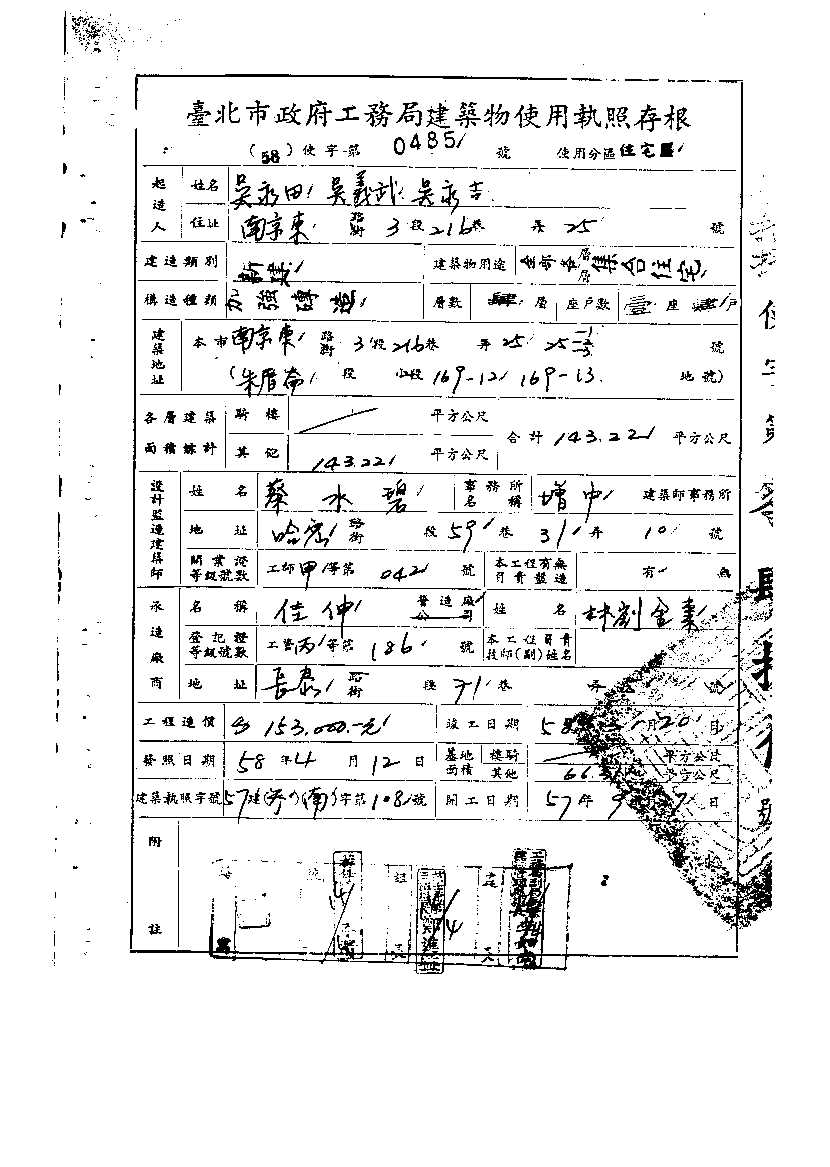 臺北市政府工務局建築物使用執照存根
(58)使字第 0485 號 使用分區住宅區
起造人 姓名 吳永田 吳義武 吳永吉
住址 南京東 路街 3段 216巷 弄 25 號
建造類別 新建 建築物用途 全部各層 集合住宅
構造種類 加強磚造 層數 肆 層 座戶數 壹 座 肆 戶
建築地址 本市 南京東 路街 3段 216巷 弄 25 25-1-3 號
(朱厝崙 段 小段 169-12 169-13 地號)
各層建築面積總計 騎樓 平方公尺 合計 143.22 平方公尺
其他 143.22 平方公尺
設計監造建築師 姓名 蔡水碧 事務所名稱 增中 建築師事務所
地址 哈密 路街 段 59 巷 31 弄 10 號
開業證等級號數 工師 甲 等第 042 號 本工程有無負責監造 有 無
承造廠商 名稱 佳伸 營造廠公司 姓名 林劉金素
登記證等級號數 工營 丙 等第 186 號 本工程負責技師(副)姓名
地址 長泰 路街 段 71 巷 弄 號
工程造價 153,000.-元 竣工日期 58 月 20 日
發照日期 58年 4 月 12 日 基地面積 樓騎 平方公尺
其他 66 平方公尺
建築執照字號 57建( )(南)字第 108 號 開工日期 57 年 9 日
附註
使字第 號